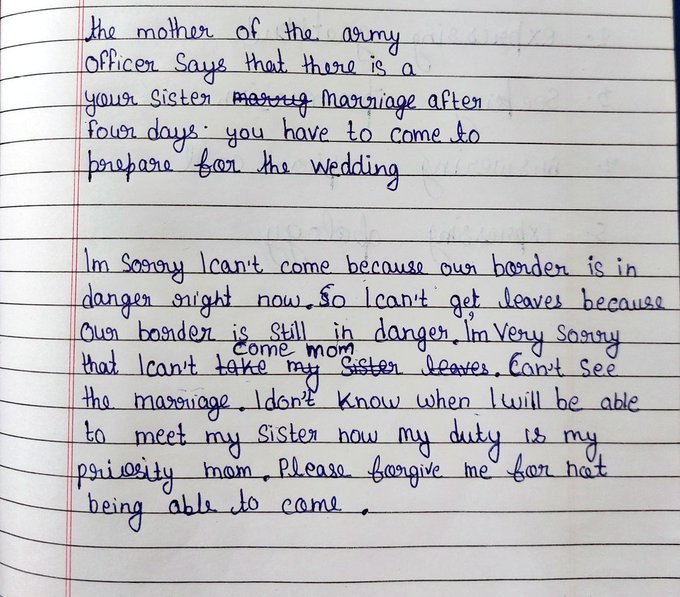 the mother of the army
officer says that there is a
your sister marrug marriage after
four days. you have to come to
prepare for the wedding
Im sorry I can't come because our boarder is in
danger right now. So I can't get leaves because
our boarder is still in danger. I'm very sorry
come mom
that I can't take my sister leaves. Can't see
the marriage. I don't know when I will be able
to meet my sister now my duty is my
priosity mom. Please forgive me for not
being able to come.